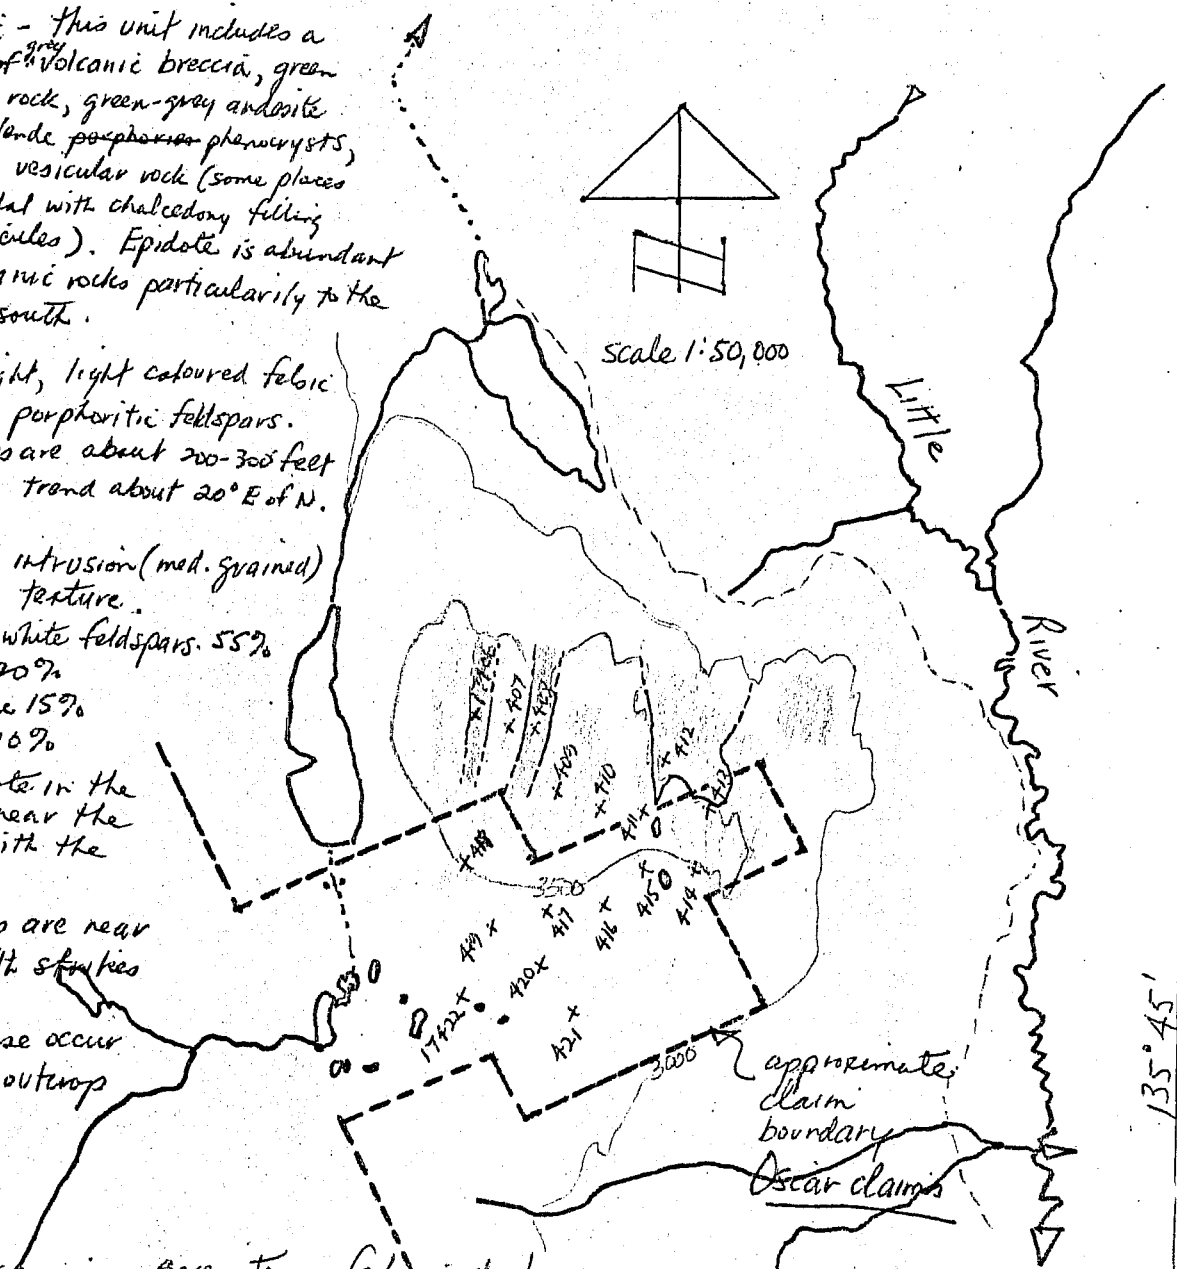 - This unit includes a
of grey volcanic breccia, green
rock, green-grey andesite
lende porphories phenocrysts,
vesicular rock (some places
dal with chalcedony filling
icules). Epidote is abundant
anic rocks particularily to the
south.
ght, light coloured felsic
porphoritic feldspars.
s are about 200-300 feet
trend about 20° E of N.
intrusion (med. grained)
texture.
white feldspars. 55%
20%
e 15%
10%
te in the
near the
ith the
s are near
th strikes
se occur
outcrop
scale 1:50,000
Little
River
17406
407
409
410
412
413
411
3500
415
414
417
416
419
420
17422
421
3000
approximate
claim
boundary
Oscar claims
135°45'